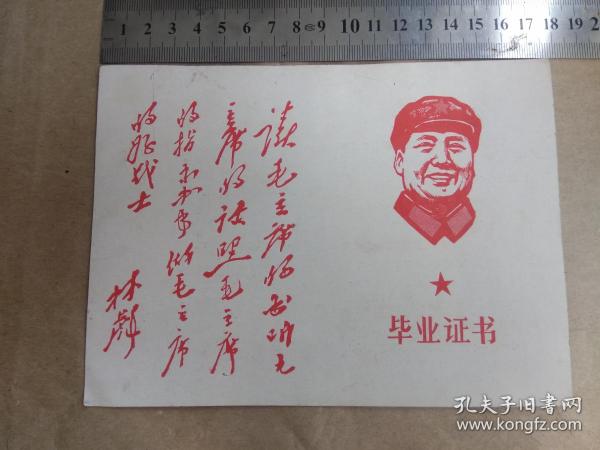 1 2 3 4 5 6 7 8 9 10 11 12 13 14 15 16 17 18 19 2
读毛主席的书听毛
主席的话照毛主席
的指示办事做毛主席
的好战士
林彪
毕业证书
孔夫子旧书网
www.kongfz.com